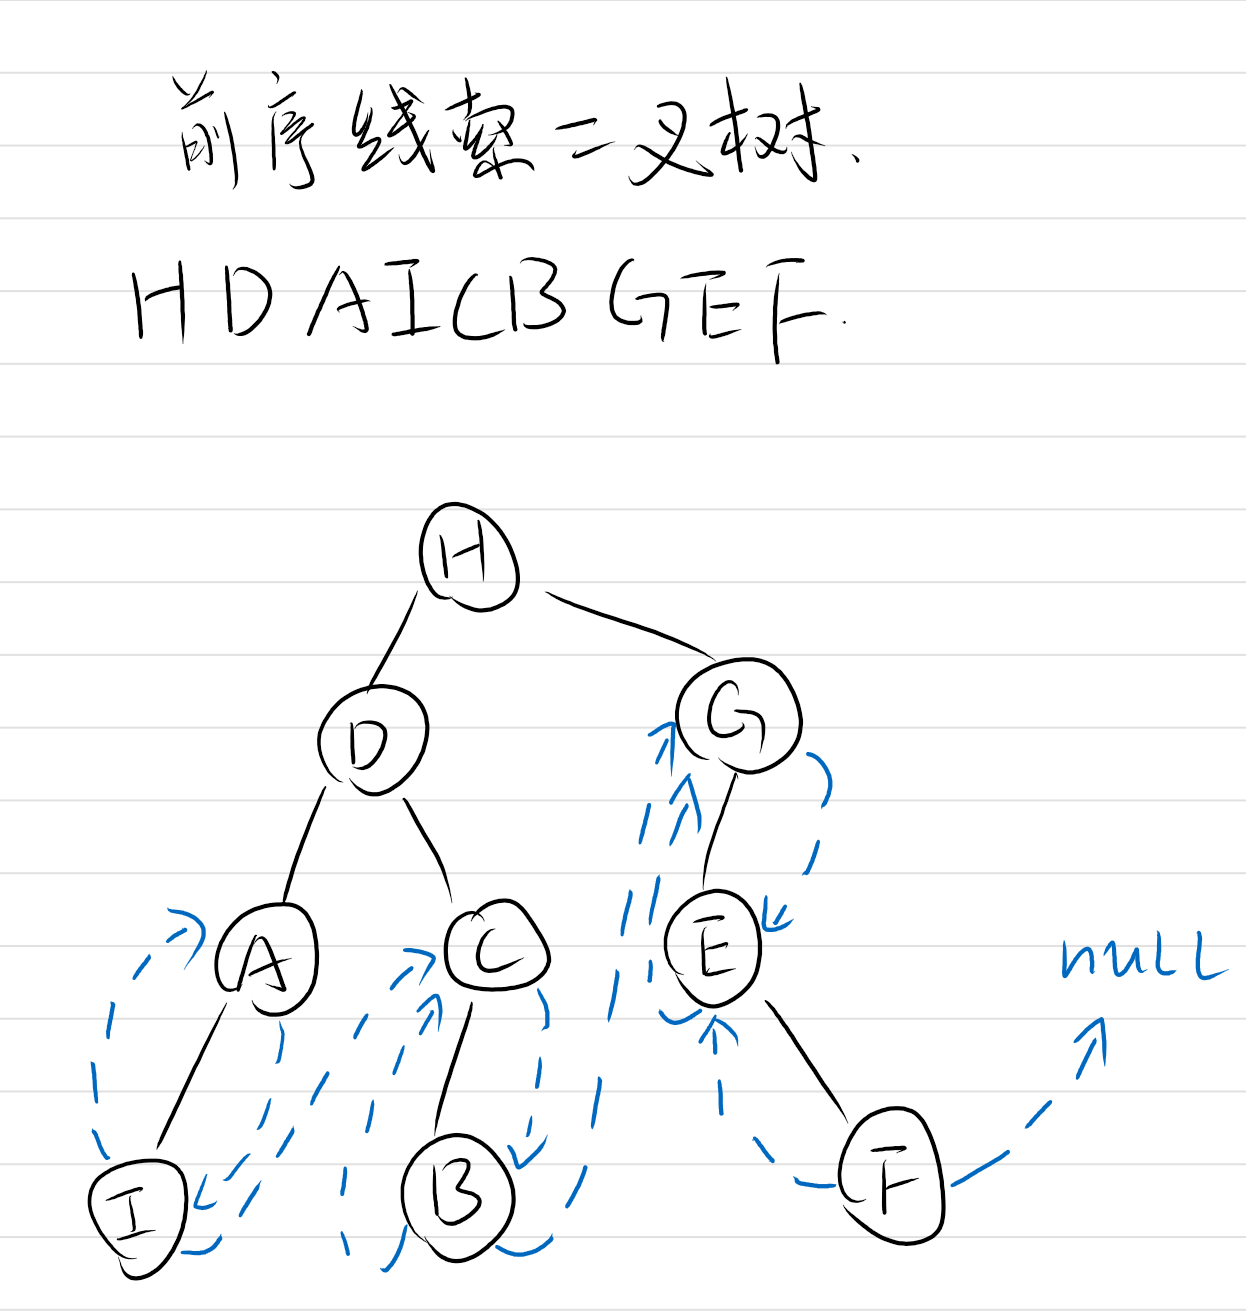 前序线索二叉树.
HDAICBGEF.
H
D
G
A
C
E
null
I
B
F